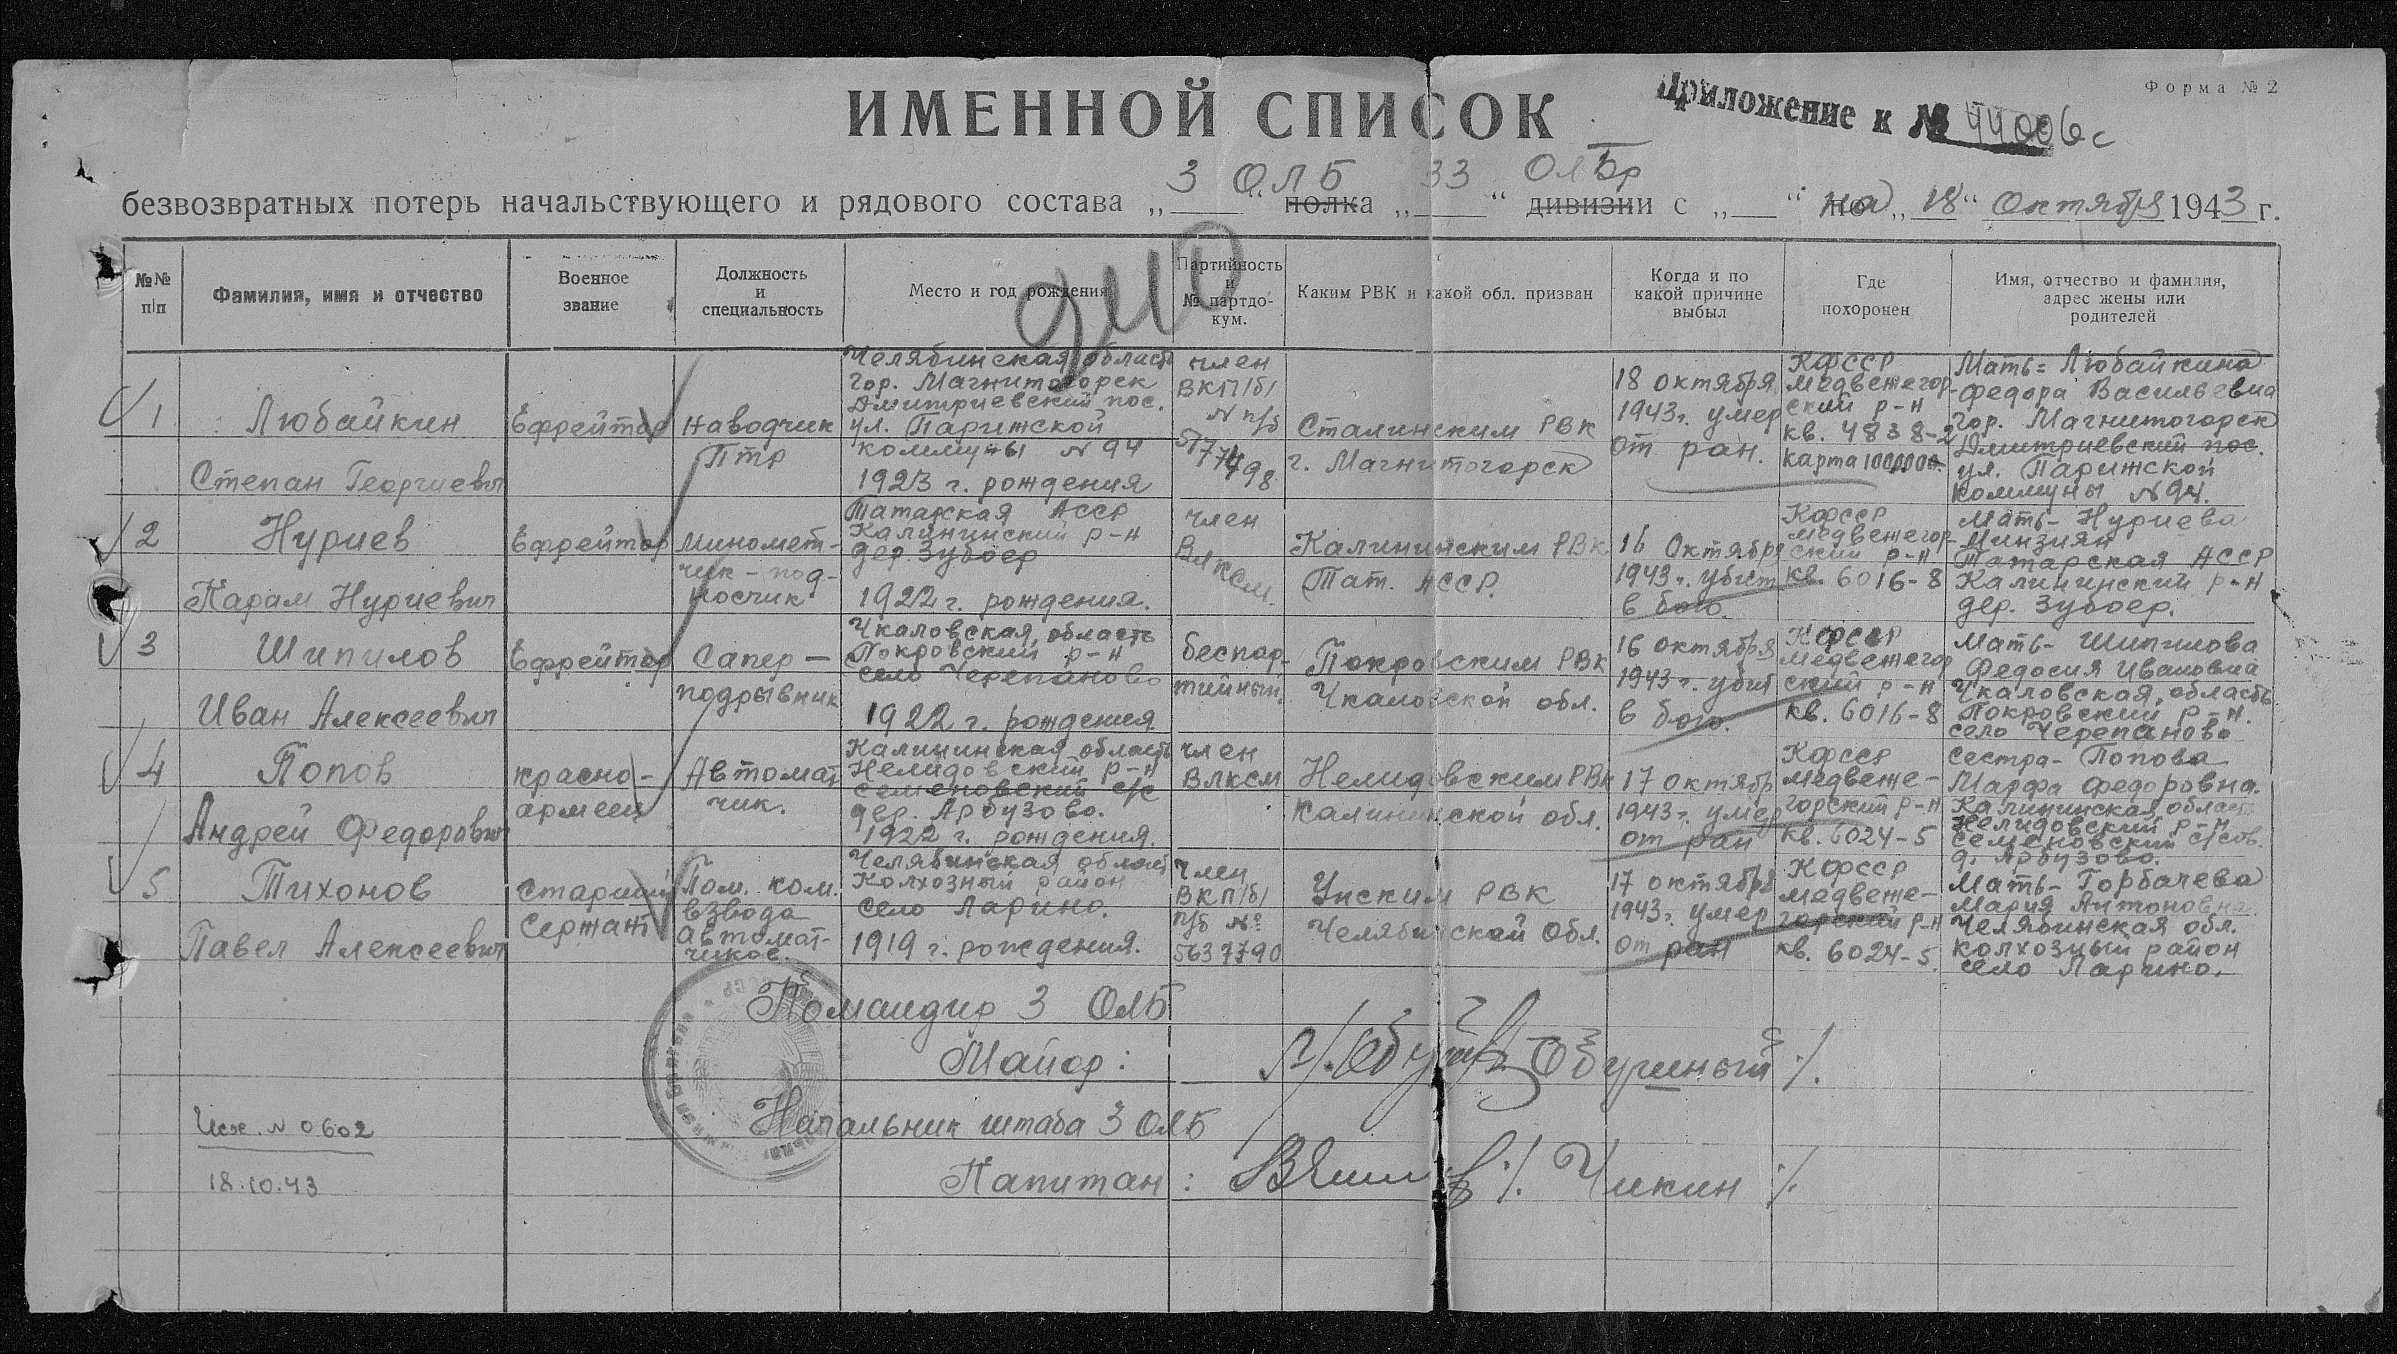 Форма № 2
Приложение к № 44006с
ИМЕННОЙ СПИСОК
безвозвратных потерь начальствующего и рядового состава „3 ОЛБ“ полка „33“ ОЛБр дивизии с „ “ на „18“ октября 1943 г.
940
№№ п/п
Фамилия, имя и отчество
Военное звание
Должность и специальность
Место и год рождения
Партийность и № партдокум.
Каким РВК и какой обл. призван
Когда и по какой причине выбыл
Где похоронен
Имя, отчество и фамилия, адрес жены или родителей
1
Любайкин
Степан Георгиевич
Ефрейтор
Наводчик
птр
Челябинская область
гор. Магнитогорск
Дмитриевский пос.
ул. Парижской
коммуны N 94
1923 г. рождения
член
ВКП/б/
N п/б
5177498
Сталинским РВК
г. Магнитогорск
18 октября
1943 г. умер
от ран.
КФССР
медвежегор-
ский р-н
кв. 4838-2
карта 1000000.
Мать = Любайкина
Федора Васильевна
гор. Магнитогорск
Дмитриевский пос.
ул. Парижской
Коммуны N 94.
2
Нуриев
Карам Нуриевич
Ефрейтор
миномет-
чик - под-
носчик
Татарская АССР
Калининский р-н
дер. Зубоер
1922 г. рождения.
член
ВЛКСМ.
Калининским РВК
Тат. АССР.
16 Октября
1943 г. убит
в бою.
КФССР
медвежегор-
ский р-н
кв. 6016-8
Мать - Нуриева
Минзиян
Татарская АССР
Калининский р-н
дер. Зубоер.
3
Шипилов
Иван Алексеевич
Ефрейтор
Сапер -
подрывник
Чкаловская область
Покровский р-н
село Черепаново
1922 г. рождения
беспар-
тийный.
Покровским РВК
Чкаловской обл.
16 октября
1943 г. убит
в бою.
КФССР
медвежегор
ский р-н
кв. 6016-8
Мать - Шипилова
Федосия Ивановна
Чкаловская область
Покровский р-н.
село Черепаново
4
Попов
Андрей Федорович
красно-
армеец
Автомат
чик.
Калининская область
Нелидовский р-н
Семеновский с/с
дер. Арбузово.
1922 г. рождения.
член
ВЛКСМ
Нелидовским РВК
Калининской обл.
17 октябр
1943 г. умер
от ран
КФССР
медвеже-
горский р-н
кв. 6024-5
Сестра - Попова
Марфа Федоровна.
Калининская област
Нелидовский р-н
Семеновский с/сов.
д. Арбузово.
5
Тихонов
Павел Алексеевич
Старший
сержант
Пом. ком.
взвода
автомат-
чиков.
Челябинская область
Колхозный район
село Ларино.
1919 г. рождения.
Член
ВКП/б/
п/б №
5637790
Уйским РВК
Челябинской обл.
17 октября
1943 г. умер
от ран
КФССР
медвеже-
горский р-н
кв. 6024-5.
Мать - Горбачева
Мария Антоновна
Челябинская обл.
Колхозный район
село Ларино.
Командир 3 ОЛБ
Майор: /Обушный/.
Начальник штаба 3 ОЛБ
Капитан: /Чикин/.
Исх. N 0602
18.10.43